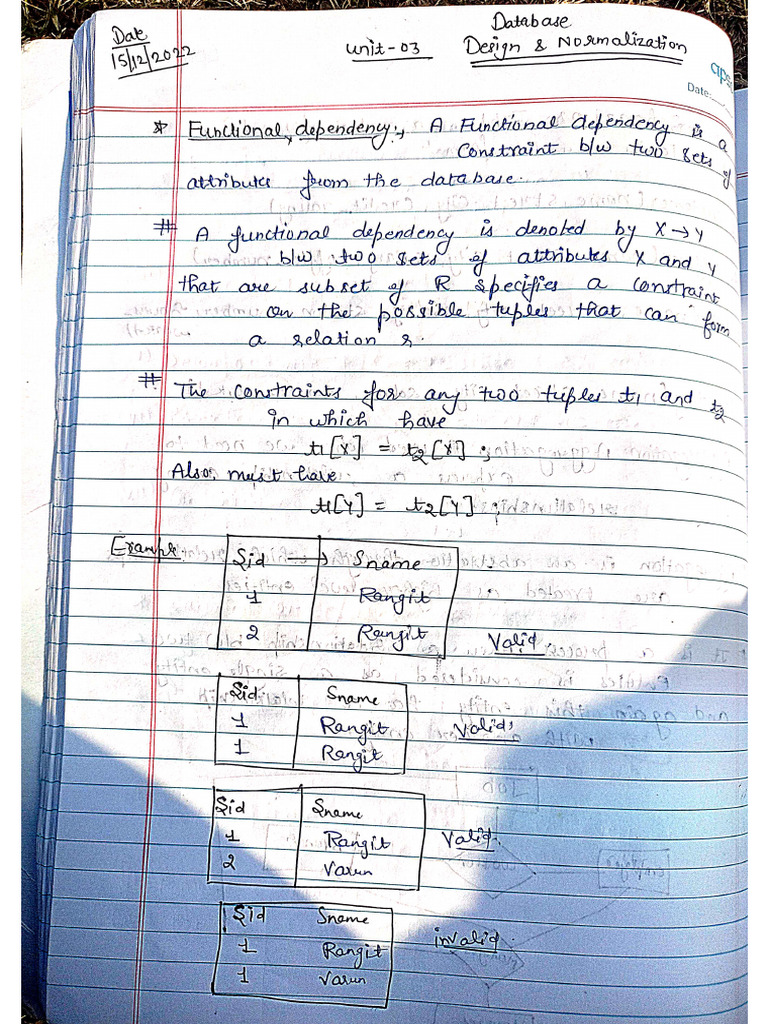 Date
15/12/2022
Unit-03
Database
Design & Normalization
Date:
* Functional dependency:, A Functional dependency is a
Constraint b/w two sets of
attributes from the database.
# A functional dependency is denoted by X → Y
b/w two sets of attributes X and Y
that are subset of R specifies a constraint
on the possible tuples that can form
a relation r.
# The constraints for any two tuples t1 and t2
in which have
t1[X] = t2[X] ;
Also, must have
t1[Y] = t2[Y] ;
Example:
Sid → Sname
1 Rangit
2 Rangit Valid.
Sid Sname
1 Rangit Valid;
1 Rangit
Sid Sname
1 Rangit Valid.
2 Varun
Sid Sname
1 Rangit invalid.
1 Varun